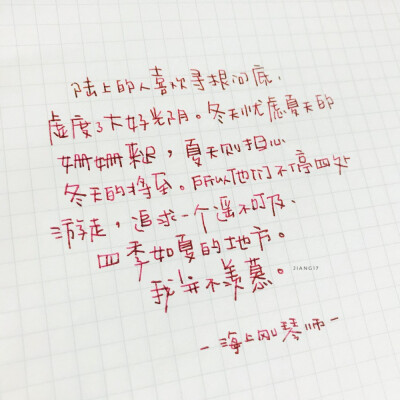 陆上的人喜欢寻根问底、
虚度了大好光阴。冬天忧虑夏天的
姗姗来迟，夏天则担心
冬天的将至。所以他们不停四处
游走，追求一个遥不可及、
四季如夏的地方。
我并不羡慕。
JIANGIT
-海上钢琴师-